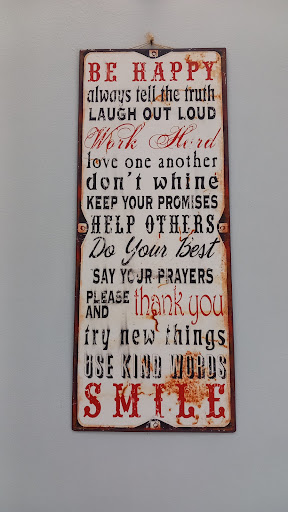 BE HAPPY
always tell the truth
LAUGH OUT LOUD
Work Hard
love one another
don't whine
KEEP YOUR PROMISES
HELP OTHERS
Do Your Best
SAY YOUR PRAYERS
PLEASE AND thank you
try new things
USE KIND WORDS
SMILE